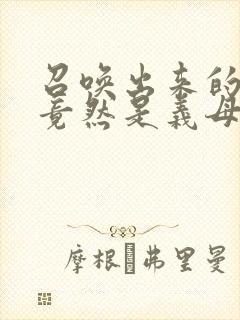 召唤出来的
竟然是义母
摩根·弗里曼